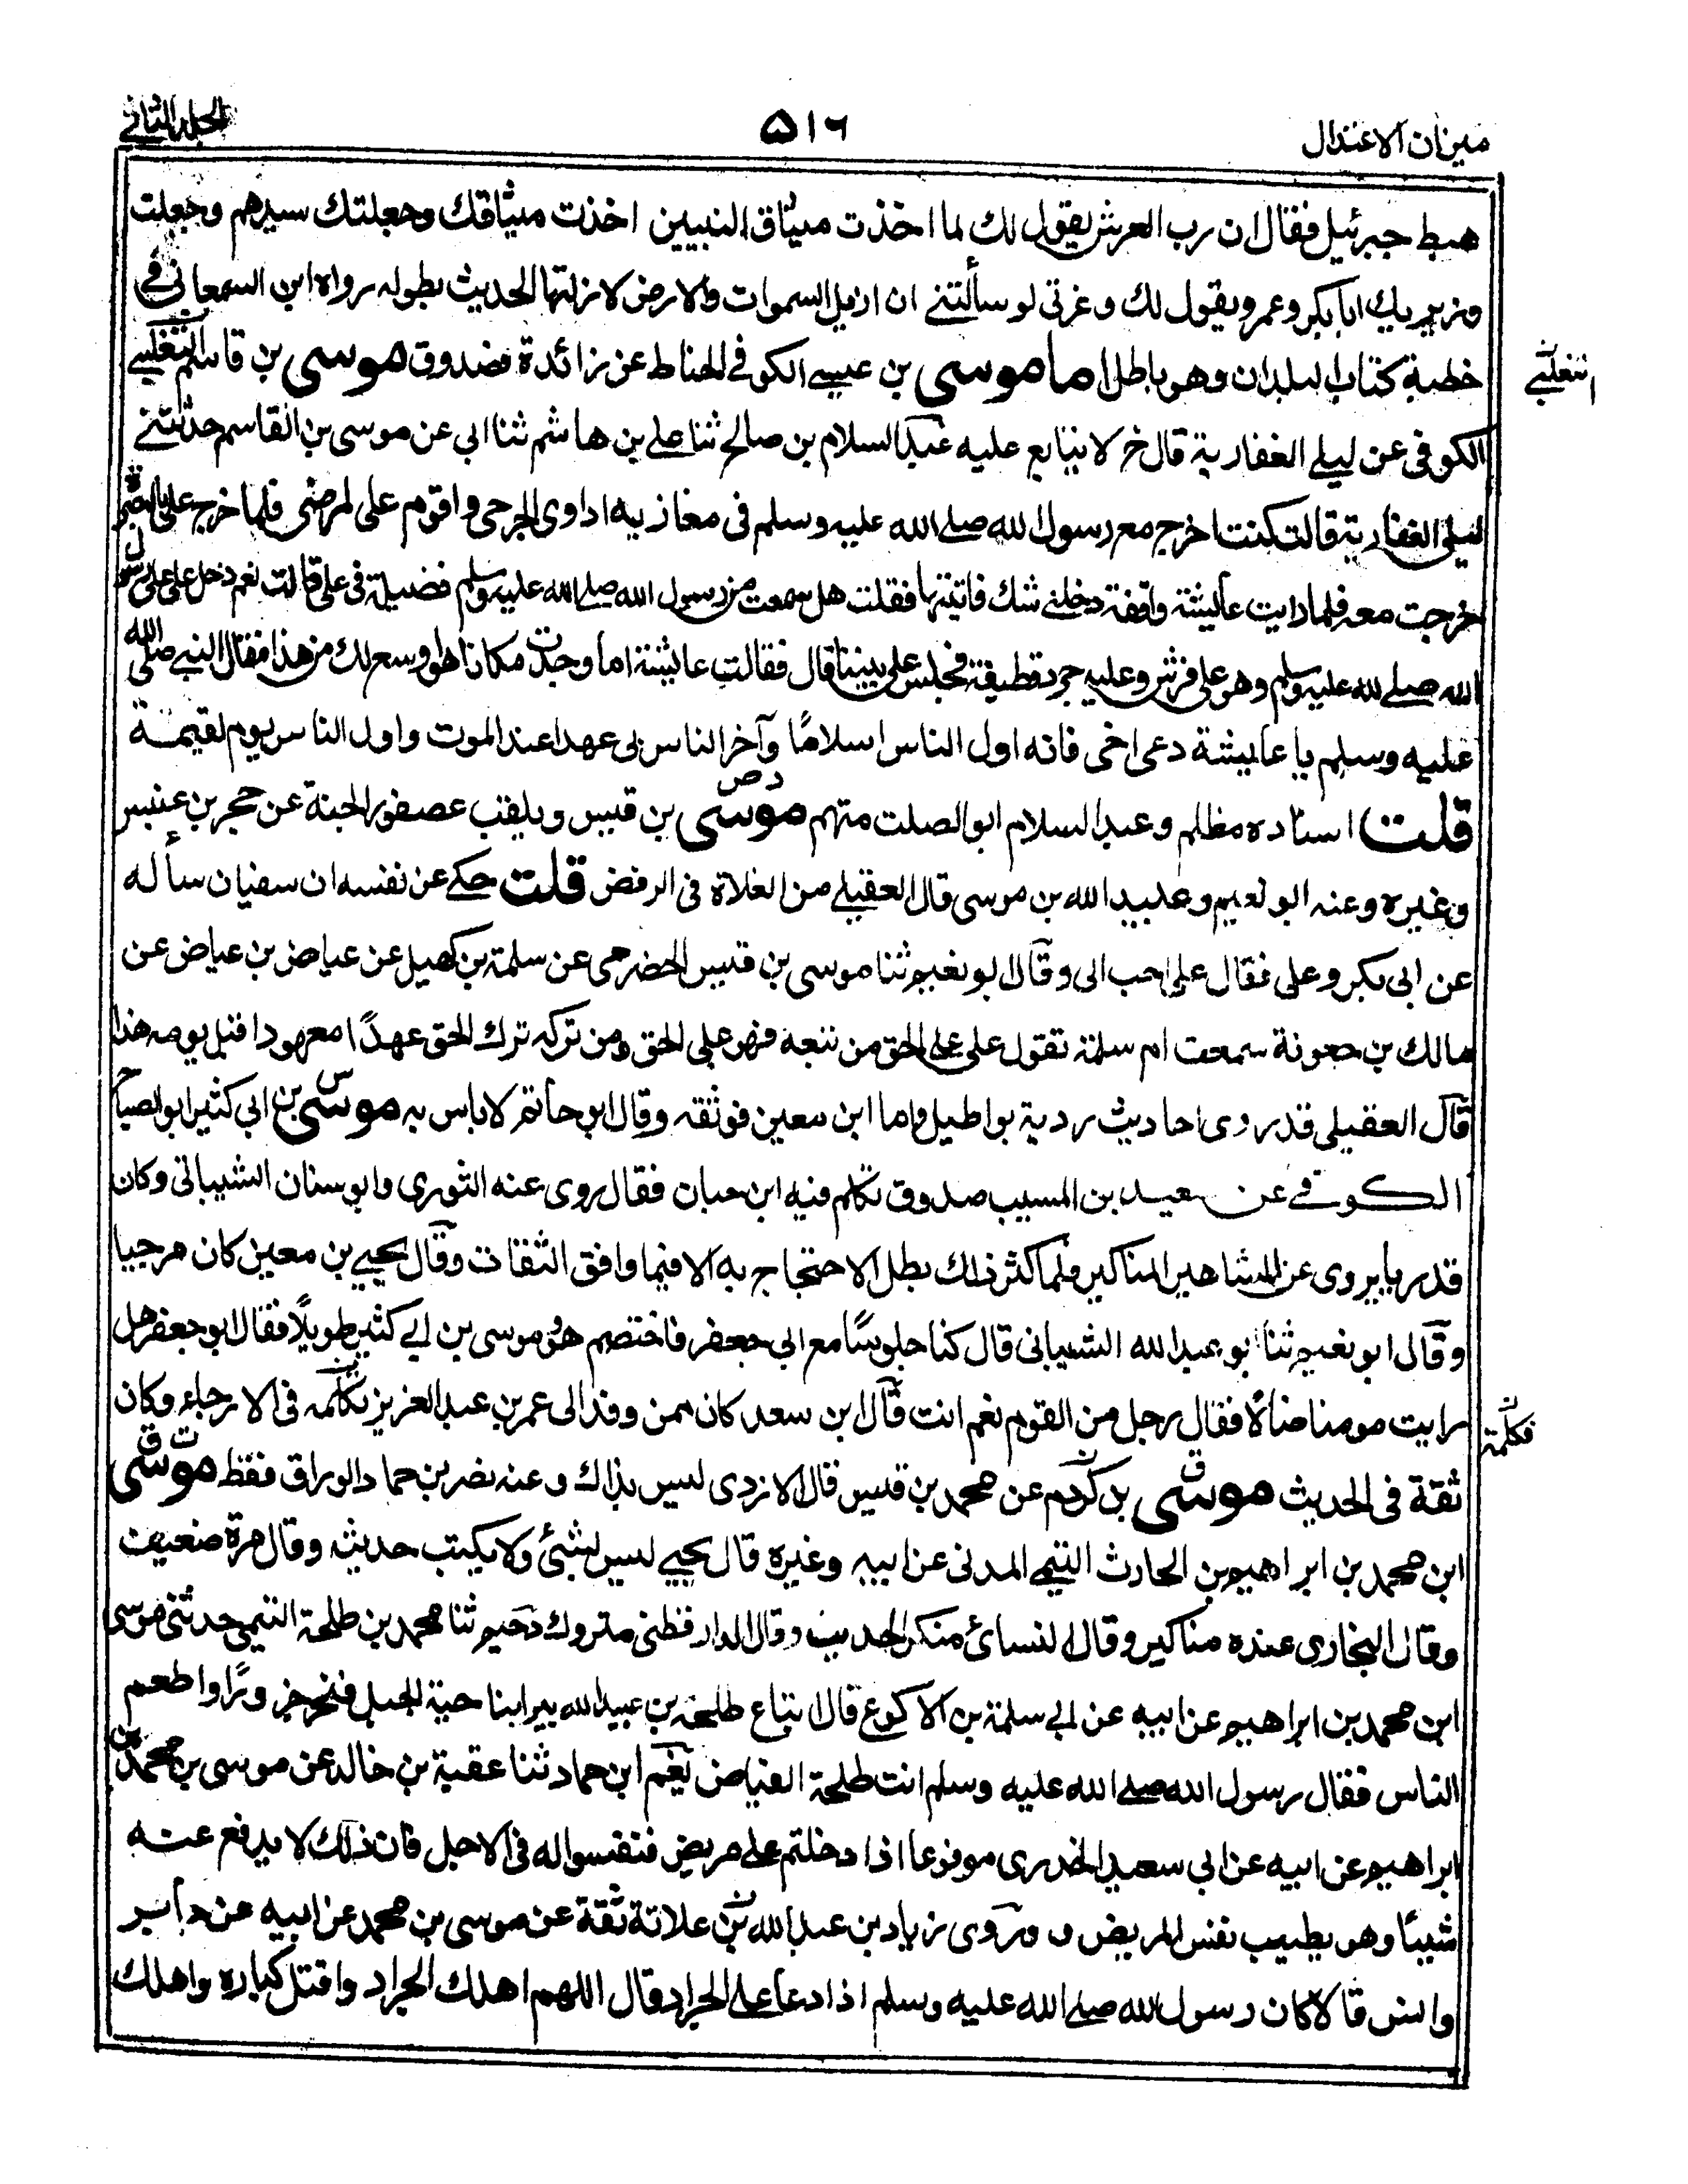 ميزان الاعتدال
٥١٦
الجلد الثاني
هبط جبرئيل فقال ان رب العرش يقول لك لما اخذت ميثاق النبيين اخذت ميثاقك وجعلتك سيدهم وجعلت
وزيريك ابا بكر وعمر ويقول لك وعزتي لو سألتني ان ازيل السموات والارض لازلتها الحديث بطوله رواه ابن السمعاني في
خطبة كتاب البلدان وهو باطل اما موسى بن عيسى الكوفي الحناط عن زائدة فصدوق موسى بن قاسم التغلبي
الثعلبي
الكوفي عن ليلى الغفارية قال خ لا يتابع عليه عبد السلام بن صالح ثنا علي بن هاشم ثنا ابي عن موسى بن القاسم حدثتني
ليلى الغفارية قالت كنت اخرج مع رسول الله صلى الله عليه وسلم في مغازيه اداوى الجرحى واقوم على المرضى فلما خرج علي بالبصرة
خرجت معه فلما رايت عايشة واقفة دخلني شك فاتيتها فقلت هل سمعت من رسول الله صلى الله عليه وسلم فضيلة في علي قالت نعم دخل علي على رسول
الله صلى الله عليه وسلم وهو على فرش وعليه جرد قطيفة فجلس علي بيننا قال فقالت عايشة اما وجدت مكانا هو اوسع لك من هذا فقال النبي صلى الله
عليه وسلم يا عايشة دعى اخى فانه اول الناس اسلامًا وآخر الناس بي عهدا عند الموت واول الناس يوم القيمة
قلت اسناده مظلم وعبد السلام ابو الصلت متهم موسى د ص بن قيس ويلقب عصفور الجنة عن حجر بن عنبس
وغيره وعنه ابو نعيم وعبيد الله بن موسى قال العقيلي من الغلاة في الرفض قلت حكى عن نفسه ان سفيان سأله
عن ابي بكر وعلي فقال علي احب الى وقال ابو نعيم ثنا موسى بن قيس الحضرمى عن سلمة بن كهيل عن عياض بن عياض عن
مالك بن جعونة سمعت ام سلمة تقول علي على الحق من تبعه فهو على الحق ومن تركه ترك الحق عهدًا معهودا قبل يومه هذا
قال العقيلي قد روى احاديث ردية بواطيل واما ابن معين فوثقه وقال ابو حاتم لا باس به موسى س بن ابي كثير ابو الصباح
الكوفي عن سعيد بن المسيب صدوق تكلم فيه ابن حبان فقال روى عنه الثوري وابو سنان الشيباني وكان
قدريا يروى عن المشاهير المناكير فلما كثر ذلك بطل الاحتجاج به الا فيما وافق الثقات وقال يحيى بن معين كان مرجيا
وقال ابو نعيم ثنا ابو عبد الله الشيباني قال كنا جلوسًا مع ابي جعفر فاختصم هو وموسى بن ابي كثير طويلًا فقال ابو جعفر هل
رايت مومنا ضالا فقال رجل من القوم نعم انت قال ابن سعد كان ممن وفد الى عمر بن عبد العزيز تكلمه في الارجاء وكان
فكلمة
ثقة في الحديث موسى ق بن كردم عن محمد بن قيس قال الازدى ليس بذاك وعنه نصر بن حماد الوراق فقط موسى ت ق
ابن محمد بن ابراهيم بن الحارث التيمي المدني عن ابيه وغيره قال يحيى ليس بشئ ولا يكتب حديثه وقال مرة ضعيف
وقال البخاري عنده مناكير وقال النسائ منكر الحديث وقال الدار قطني متروك دحيم ثنا محمد بن طلحة التيمي حدثني موسى
ابن محمد بن ابراهيم عن ابيه عن ابي سلمة بن الاكوع قال ابتاع طلحة بن عبيد الله بيرا بناحية الجبل فنحر جزورًا واطعم
الناس فقال رسول الله صلى الله عليه وسلم انت طلحة الفياض نعيم ابن حماد ثنا عقبة بن خالد عن موسى بن محمد بن
ابراهيم عن ابيه عن ابي سعيد الخدرى موفوعا اذا دخلتم على مريض فنفسوا له في الاجل فان ذلك لا يدفع عنه
شيئا وهو يطيب نفس المريض وروى زياد بن عبد الله بن علاثة ثقة عن موسى بن محمد عن ابيه عن جابر
وانس قالا كان رسول الله صلى الله عليه وسلم اذا دعا على الجراد قال اللهم اهلك الجراد واقتل كباره واهلك